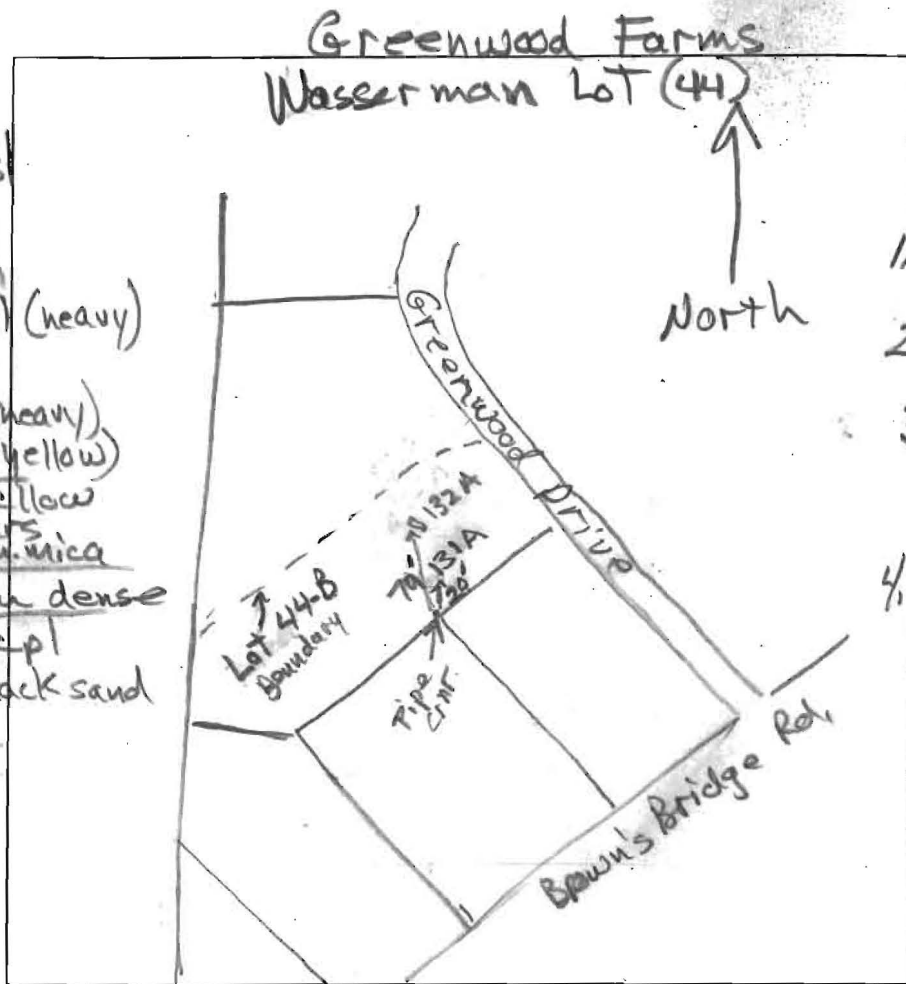 Greenwood Farms
Wasserman Lot (44)
North
(heavy)
heavy)
yellow)
mica
dense
sand
Greenwood Drive
132A
79'
131A
20'
Lot 44-B
Boundary
Pipe
Crnr.
Brown's Bridge Rd.
1.
2
4.